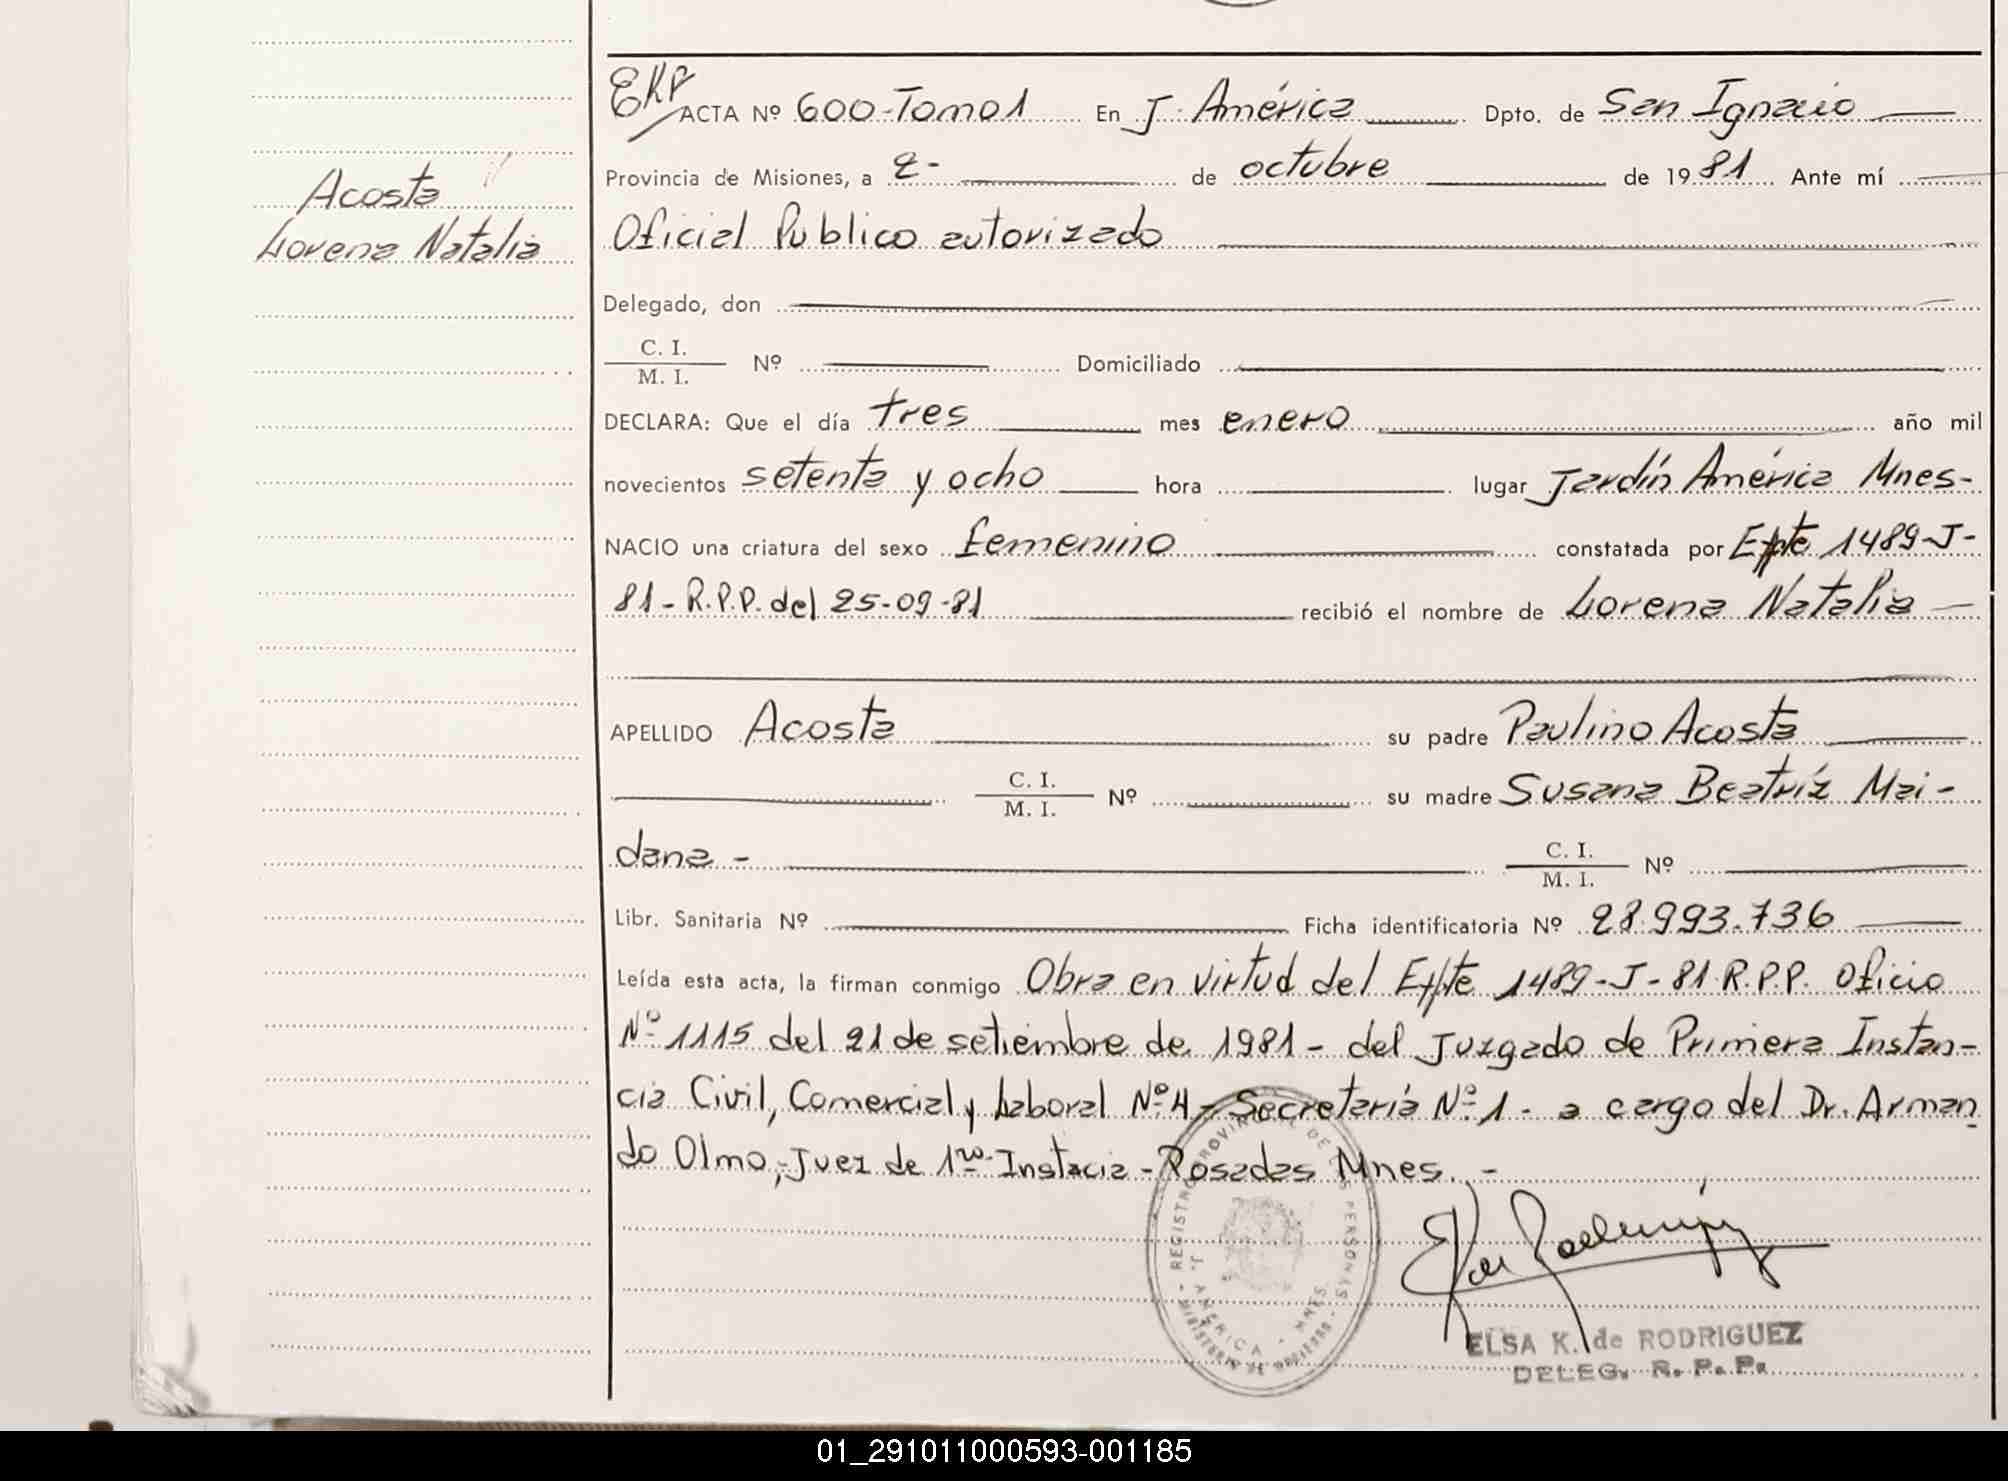 EKP
ACTA Nº 600-Tomo 1 En J. América Dpto. de San Ignacio
Acosta
Lorena Natalia
Provincia de Misiones, a 2- de octubre de 1981 Ante mí
Oficial Publico autorizado
Delegado, don
C. I.
M. I. Nº Domiciliado
DECLARA: Que el día tres mes enero año mil
novecientos setenta y ocho hora lugar Jardín América Mnes-
NACIO una criatura del sexo femenino constatada por Expte 1489-J-
81-R.P.P. del 25-09-81 recibió el nombre de Lorena Natalia
APELLIDO Acosta su padre Paulino Acosta
C. I.
M. I. Nº su madre Susana Beatríz Mai-
dana- C. I.
M. I. Nº
Libr. Sanitaria Nº Ficha identificatoria Nº 28.993.736
Leída esta acta, la firman conmigo Obra en virtud del Expte 1489-J-81 R.P.P. Oficio
Nº 1115 del 21 de setiembre de 1981- del Juzgado de Primera Instan-
cia Civil, Comercial y Laboral Nº 4- Secretaría Nº 1- a cargo del Dr. Arman
do Olmo,-Juez de 1ra Instacia-Posadas Mnes.-
REGISTRO PROVINCIAL DE LAS PERSONAS
J. AMÉRICA - MNES.
MINISTERIO DE GOBIERNO
ELSA K. de RODRIGUEZ
DELEG. R. P. P.
01_291011000593-001185